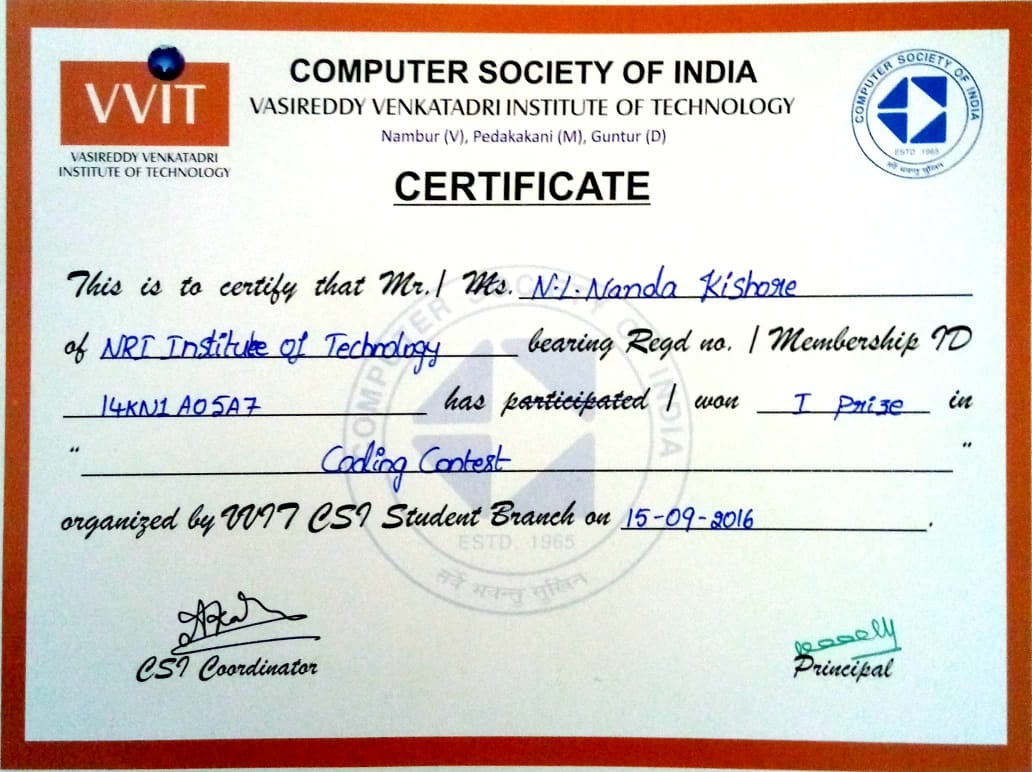 VVIT
VASIREDDY VENKATADRI
INSTITUTE OF TECHNOLOGY
COMPUTER SOCIETY OF INDIA
VASIREDDY VENKATADRI INSTITUTE OF TECHNOLOGY
Nambur (V), Pedakakani (M), Guntur (D)
COMPUTER SOCIETY OF INDIA
ESTD 1965
सर्वे भवन्तु सुखिन
CERTIFICATE
This is to certify that Mr./ Ms. N.L. Nanda Kishore
of NRI Institute of Technology bearing Regd no. / Membership ID
14KN1A05A7 has participated / won I Prize in
“ Coding Contest ”
organized by VVIT CSI Student Branch on 15-09-2016.
COMPUTER SOCIETY OF INDIA
ESTD. 1965
सर्वे भवन्तु सुखिन
CSI Coordinator
Principal